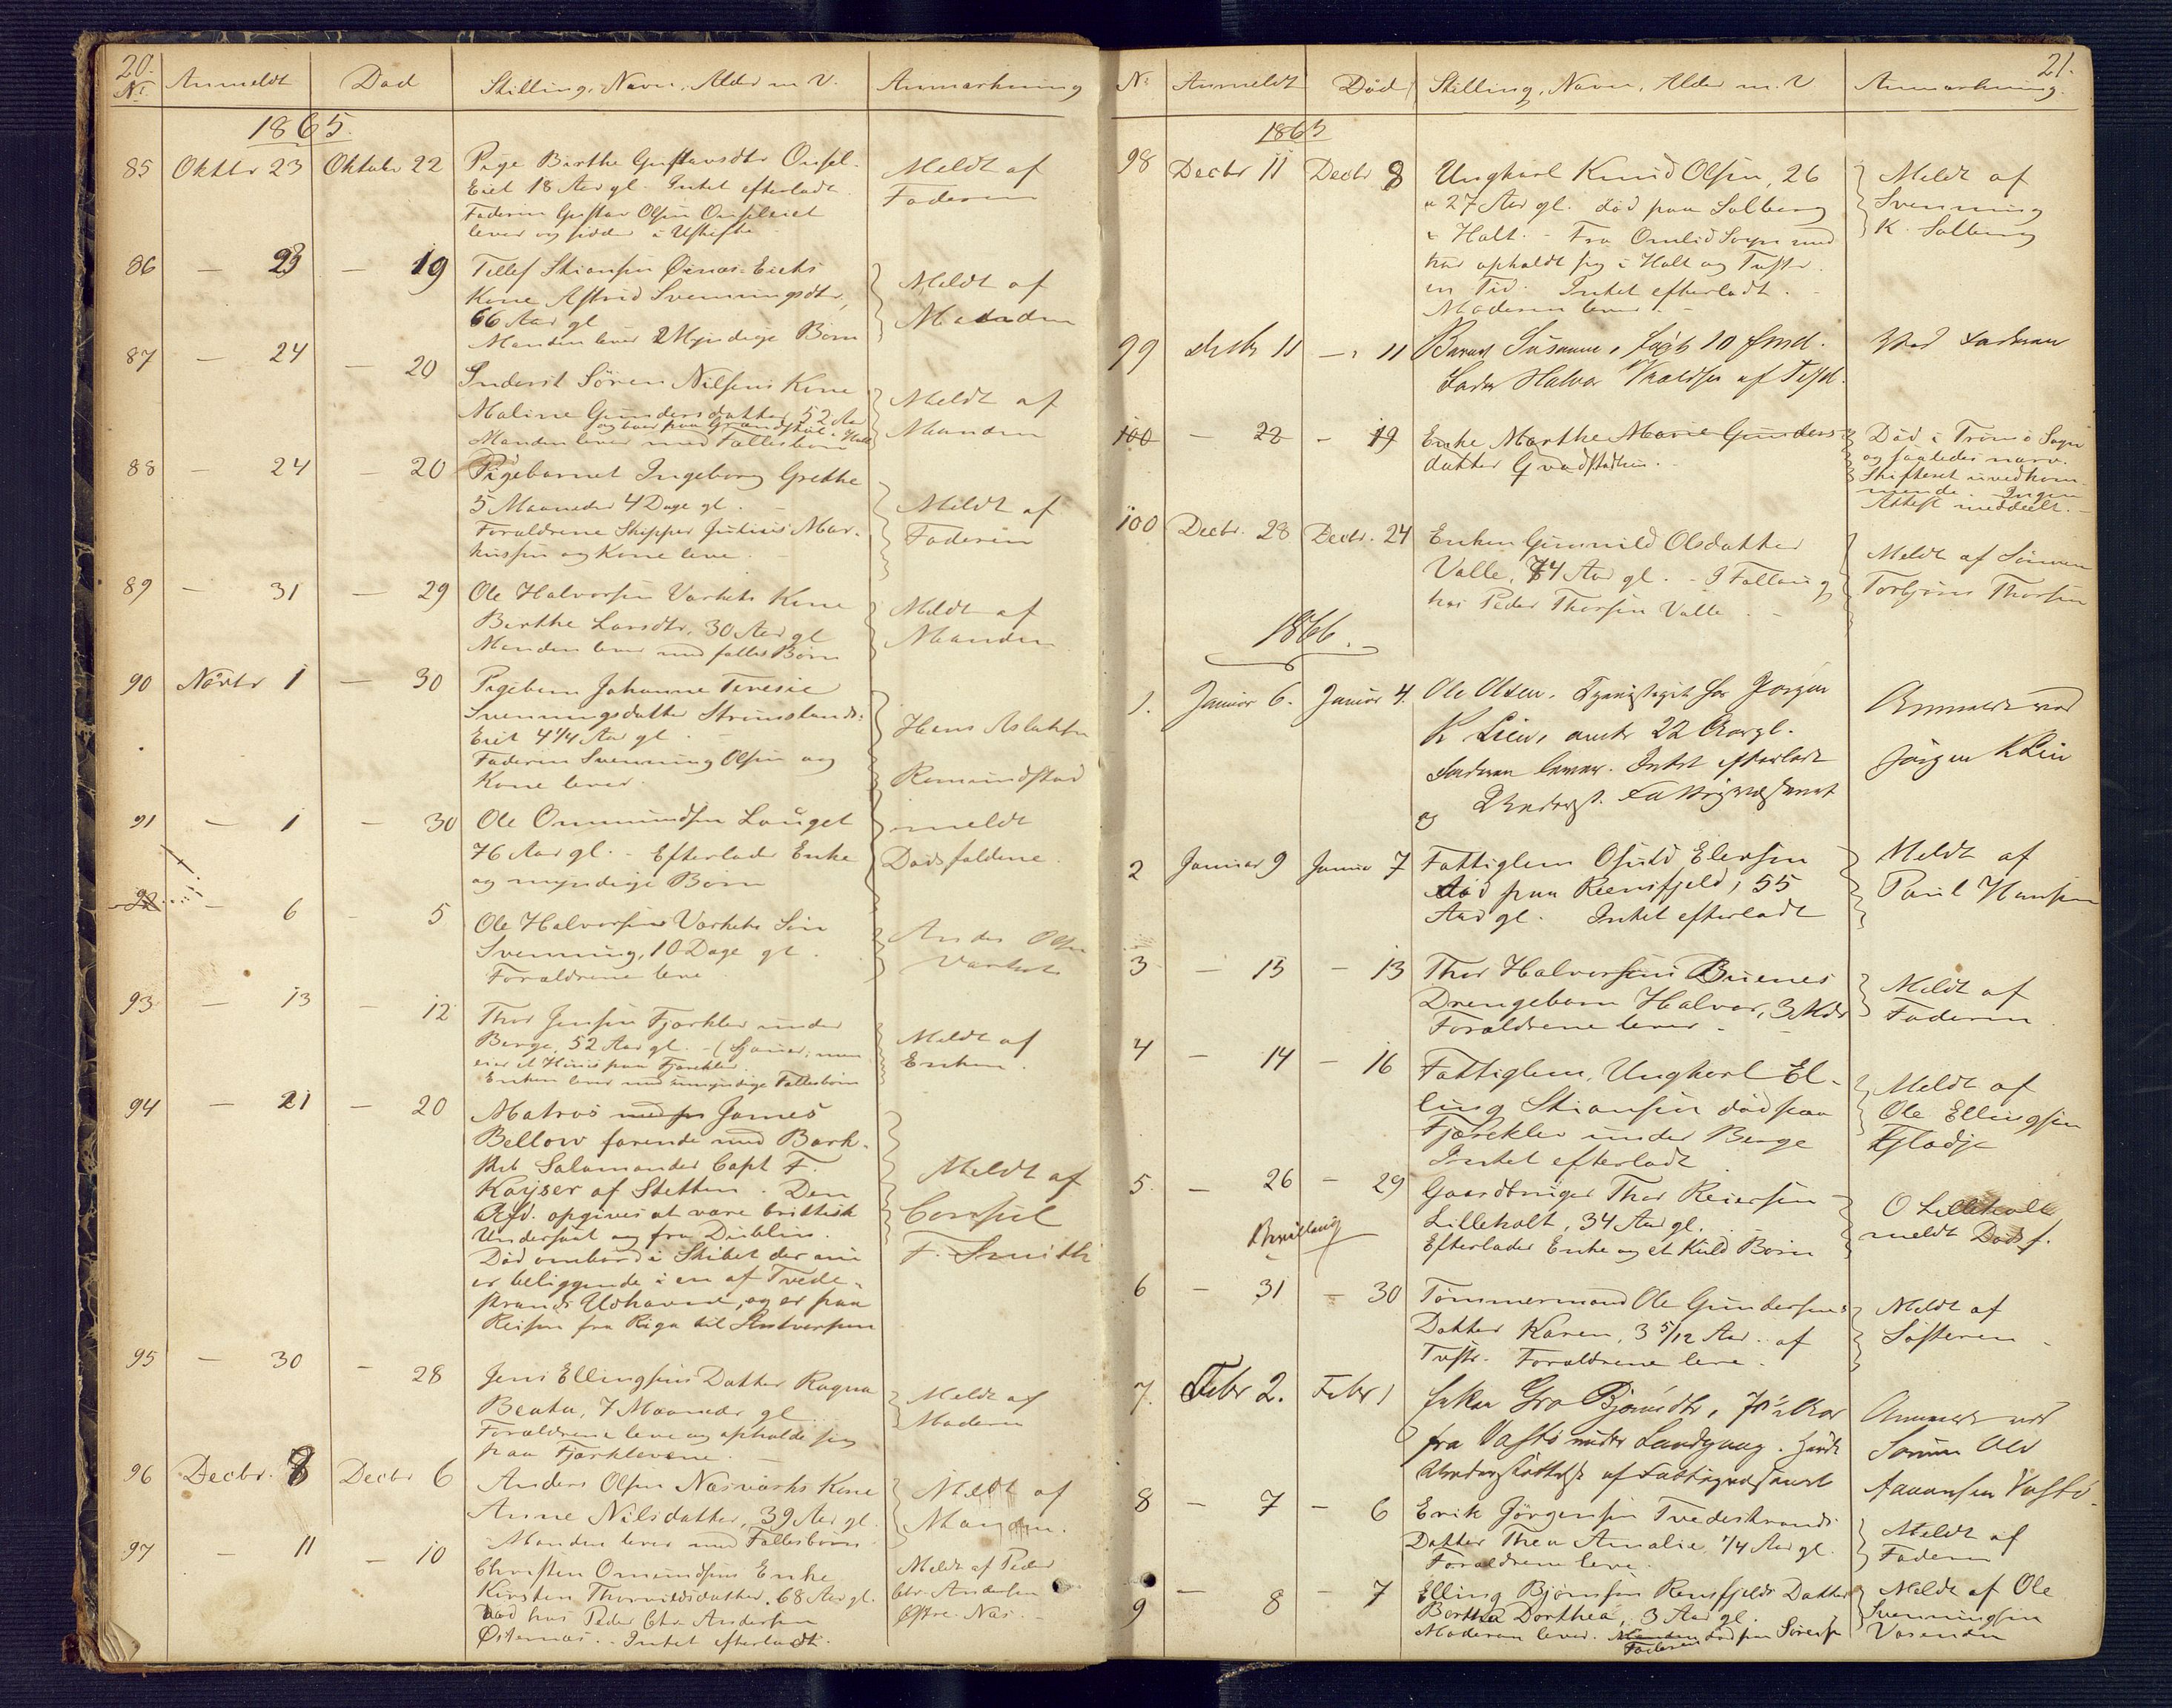 20.
No Anmeldt Död Stilling, Navn, Alder m. V. Anmærkning
1865.
85 Oktbr 23 Oktober 22 Pige Birthe Gustavsdtr Onsel-
Eiet 18 Aar gl. Intet efterladt.
Faderen Gustav Olsen Onseleiet
lever og sidder i Uskifte
Meldt af
Faderen
86 — 23 — 19 Tellef Stiansen Öinæs-Eiets
Kone Astrid Svenningsdtr,
66 Aar gl
Manden lever 2 Myndige Børn
Meldt af
Manden
87 — 24 — 20 Inderst Sören Nilsens Kone
Maline Gundersdatter, 52 Aar
og boer paa Grændstöl i Holt
Manden lever med Fællesbörn
Meldt af
Manden
88 — 24 — 20 Pigebarnet Ingeborg Grethe
5 Maaneder 4 Dage gl. —
Forældrene Skipper Julius Mar-
kussen og Kone leve. —
Meldt af
Faderen
89 — 31 — 29 Ole Halvorsen Værkets Kone
Berthe Larsdtr, 30 Aar gl
Manden lever med fælles Børn
Meldt af
Manden
90 Novbr 1 — 30 Pigebarn Johanne Teresie
Svenningsdatter Strimslands-
Eiet 4 1/4 Aar gl. —
Faderen Svenning Olsen og
Kone lever.
Hans Aslaksen
Romundstad
91 — 1 — 30 Ole Ommundsen Lauget
76 Aar gl. — Efterlader Enke
og myndige Börn
meldt
Dødsfaldene.
92 — 6 — 5 Ole Halvorsens Værkets Sön
Svenning, 10 Dage gl.
Forældrene leve
Anders Olsen
Værket
93 — 13 — 12 Thor Jensen Fjærklev under
Berge, 52 Aar gl. — (Sjauer, men
eier et Huus paa Fjæreklev
Enken lever med umyndige Fællesbörn
Meldt af
Enken.
94 — 21 — 20 Matros James
Bellow farende med Bark-
skib Salamander Capt F.
Kayser af Stettin. Den
Afd. opgives at være brittisk
Undersaat og fra Dublin.
Död ombord i Skibet der nu
er beliggende i en af Tvede-
strands Udhavne, og er paa
Reisen fra Riga til Antverpen
Meldt af
Consul
F. Smith
95 — 30 — 28 Jens Ellingsens Datter Ragna
Beata, 7 Maaneder gl.
Forældrene leve og opholde sig
paa Fjærklevene. —
Meldt af
Moderen
96 Decbr. 8 Decbr 6 Anders Olsen Næsværks Kone
Anne Nilsdatter, 39 Aar gl.
Manden lever med Fællesbörn
Meldt af
Manden.
97 — 11 — 10 Christen Omundsens Enke
Kirsten Thorvildsdatter, 68 Aar gl.
Död hos Peder Chr. Andersen
Östernæs. — Intet efterladt.
Meldt af Peder
Chr. Andersen
Østre-Næs. —
21.
No Anmeldt Död Stilling, Navn, Alder m. V Anmærkning.
1865
98 Decbr 11 Decbr 8 Ungkarl Knud Olsen, 26
a 27 Aar gl. död paa Solberg
i Holt. — Fra Omlid Sogn med
har opholdt sig i Holt og Tvestr.
en Tid. Intet efterladt. —
Moderen lever. —
Meldt af
Svenning
K. Solberg
99 Decbr 11 — 11 Barnet Susanne, født 10 
Fader Halvor Knudsen af Tvstr.
Ved Faderen
100 — 22 — 19 Enke Marthe Marie Gunders-
datter Gvadstadhei. —
Död i Tromö Sogn
og saaledes nærv.
Skifteret uvedkom-
mende. Ingen
Attest meddeelt. —
100 Decbr. 28 Decbr. 24 Enken Gunnild Olsdatter
Valle, 84 Aar gl. — I Følloug
hos Peder Thorsen Valle. —
Meldt af Sönnen
Torbjörn Thorsen
1866.
1. Januar 6. Januar 4. Ole Olsen, Tjenestegut hos Jörgen
K Lien, omtr 22 Aargl.
Faderen lever. Intet efterladt
og Underst. Fattigvæsenet
Anmeldt ved
Jörgen K Lien
2 Januar 9 Januar 7 Fattiglem Osuld Elefsen
död paa Reensfjeld, 55
Aar gl. Intet efterladt
Meldt af
Paul Hansen
3 — 15 — 13 Thor Halvorsens Buenes
Drengebarn Halvor, 3 Mdr
Forældrene lever —
Meldt af
Faderen.
4 — 14 — 16 Fattiglem, Ungkarl El-
ling Stiansen död paa
Fjæreklev under Berge
Intet efterladt.
Meldt af
Ole Ellingsen
Glodje
5 — 26 — 29 Gaardbruger Thor Reiersen
Lilleholt, 34 Aar gl.
Efterlader Enke og et Kuld Börn
O Lilleholt
meldt Dødsf.
6 — 31 — 30 Tömmermand Ole Gundersens
Datter Karen, 3 5/12 Aar. af
Tvstr. Forældrene leve.
Meldt af
Søsteren —
7. Febr 2. Febr 1 Enken Gro Bjørnsdtr, 75 1/2 Aar
fra Vastö under Landgaag. Havde
Understöttelse af Fattigvæsenet
Anmeldt ved
Sönnen Ole
Aanonsen Vastö.
8 — 7 — 6 Erik Jörgensen Tvedestrands
Datter Thea Amalie, 1/4 Aar gl.
Forældrene leve.
Meldt af
Faderen
9 — 8 — 7 Elling Bjørnsen Rensfjelds Datter
Berthea Dorthea, 3 Aar gl.
Moderen lever. Manden Faderen död paa Söreise
Meldt af Ole
Svenningsen
Vasenden